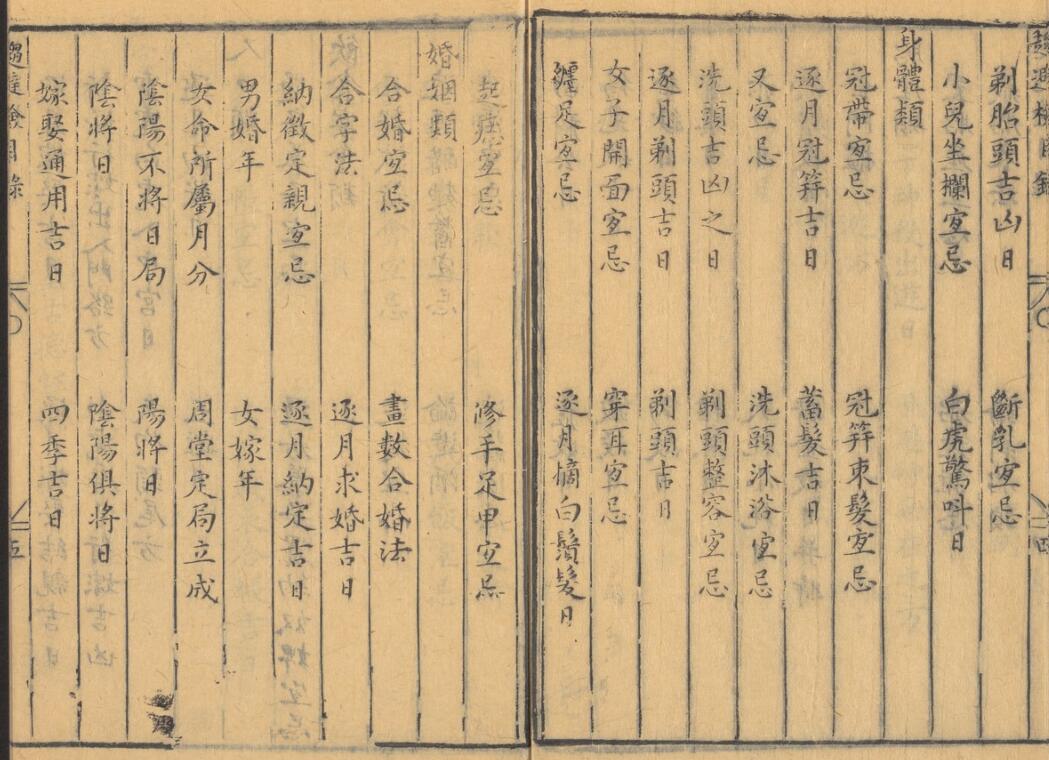 剃胎頭吉凶日 斷乳宜忌
小兒坐欄宜忌 白虎驚呌日
身體類
冠帶宜忌 冠筓束髮宜忌
逐月冠筓吉日 蓄髮吉日
又宜忌 洗頭沐浴宜忌
洗頭吉凶之日 剃頭整容宜忌
逐月剃頭吉日 剃頭吉日
女子開面宜忌 穿耳宜忌
纏足宜忌 逐月摘白鬚髮日
宜忌 修手足甲宜忌
婚姻類
合婚宜忌 畫數合婚法
合字法 逐月求婚吉日
納徵定親宜忌 逐月納定吉日
男婚年 女嫁年
女命所屬月分 周堂定局立成
陰陽不將日局 陽將日
陰將日 陰陽俱將日
嫁娶通用吉日 四季吉日
五